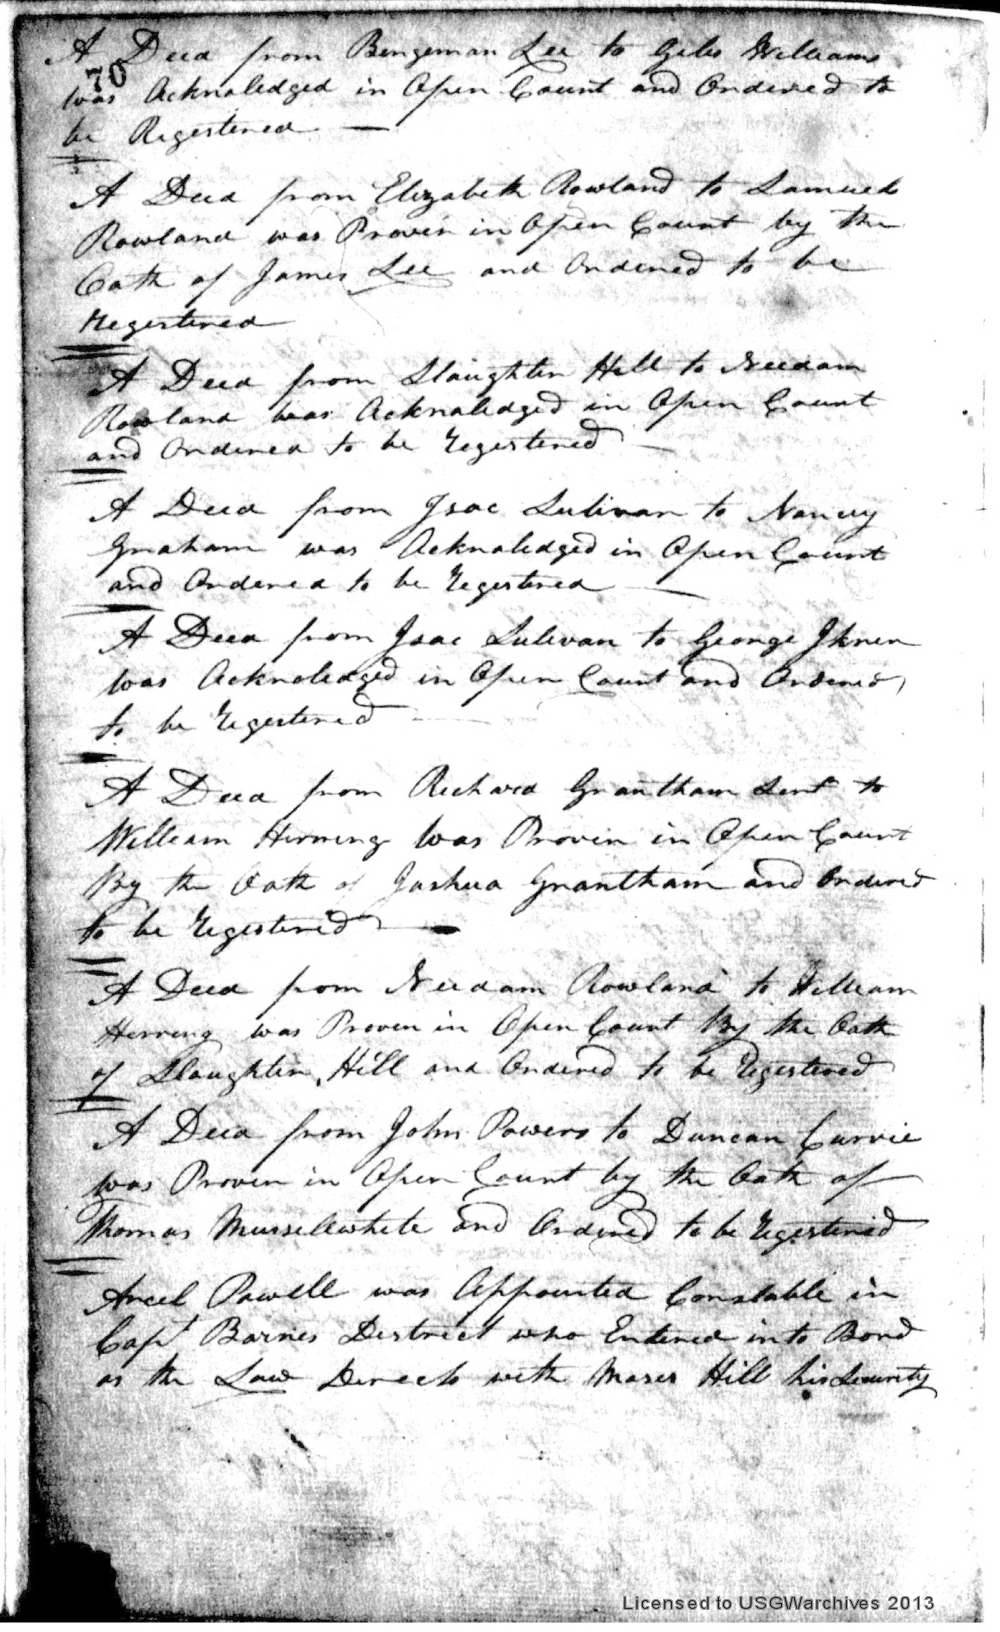 A Deed from Bengeman Lee to Giles Williams
70
was Acknaledged in Open Court and Ordered to
be Registered
A Deed from Elizabeth Rowland to Samuel
Rowland was Proven in Open Court by the
Oath of James Lee and Ordered to be
Registered
A Deed from Slaughter Hill to Needam
Rowland was Acknaledged in Open Court
and Ordered to be Registered
A Deed from Isac Sulivan to Nancy
Graham was Acknaledged in Open Court
and Ordered to be Registered
A Deed from Isac Sulivan to George
was Acknoledged in Open Court and Ordered
to be Registered
A Deed from Richard Grantham to
William Herring was Proven in Open Court
By the Oath of Joshua Grantham and Ordered
to be Registered
A Deed from Needam Rowland to William
Herring was Proven in Open Court By the Oath
of Slaughter Hill and Ordered to be Registered
A Deed from John Powers to Duncan Currie
was Proven in Open Court by the Oath of
Thomas Musselewhite and Ordered to be Registered
Powell was Appointed Constable in
Capt Barnes District who Entered into Bond
as the Law Directs with Moses Hill his Security
Licensed to USGWarchives 2013